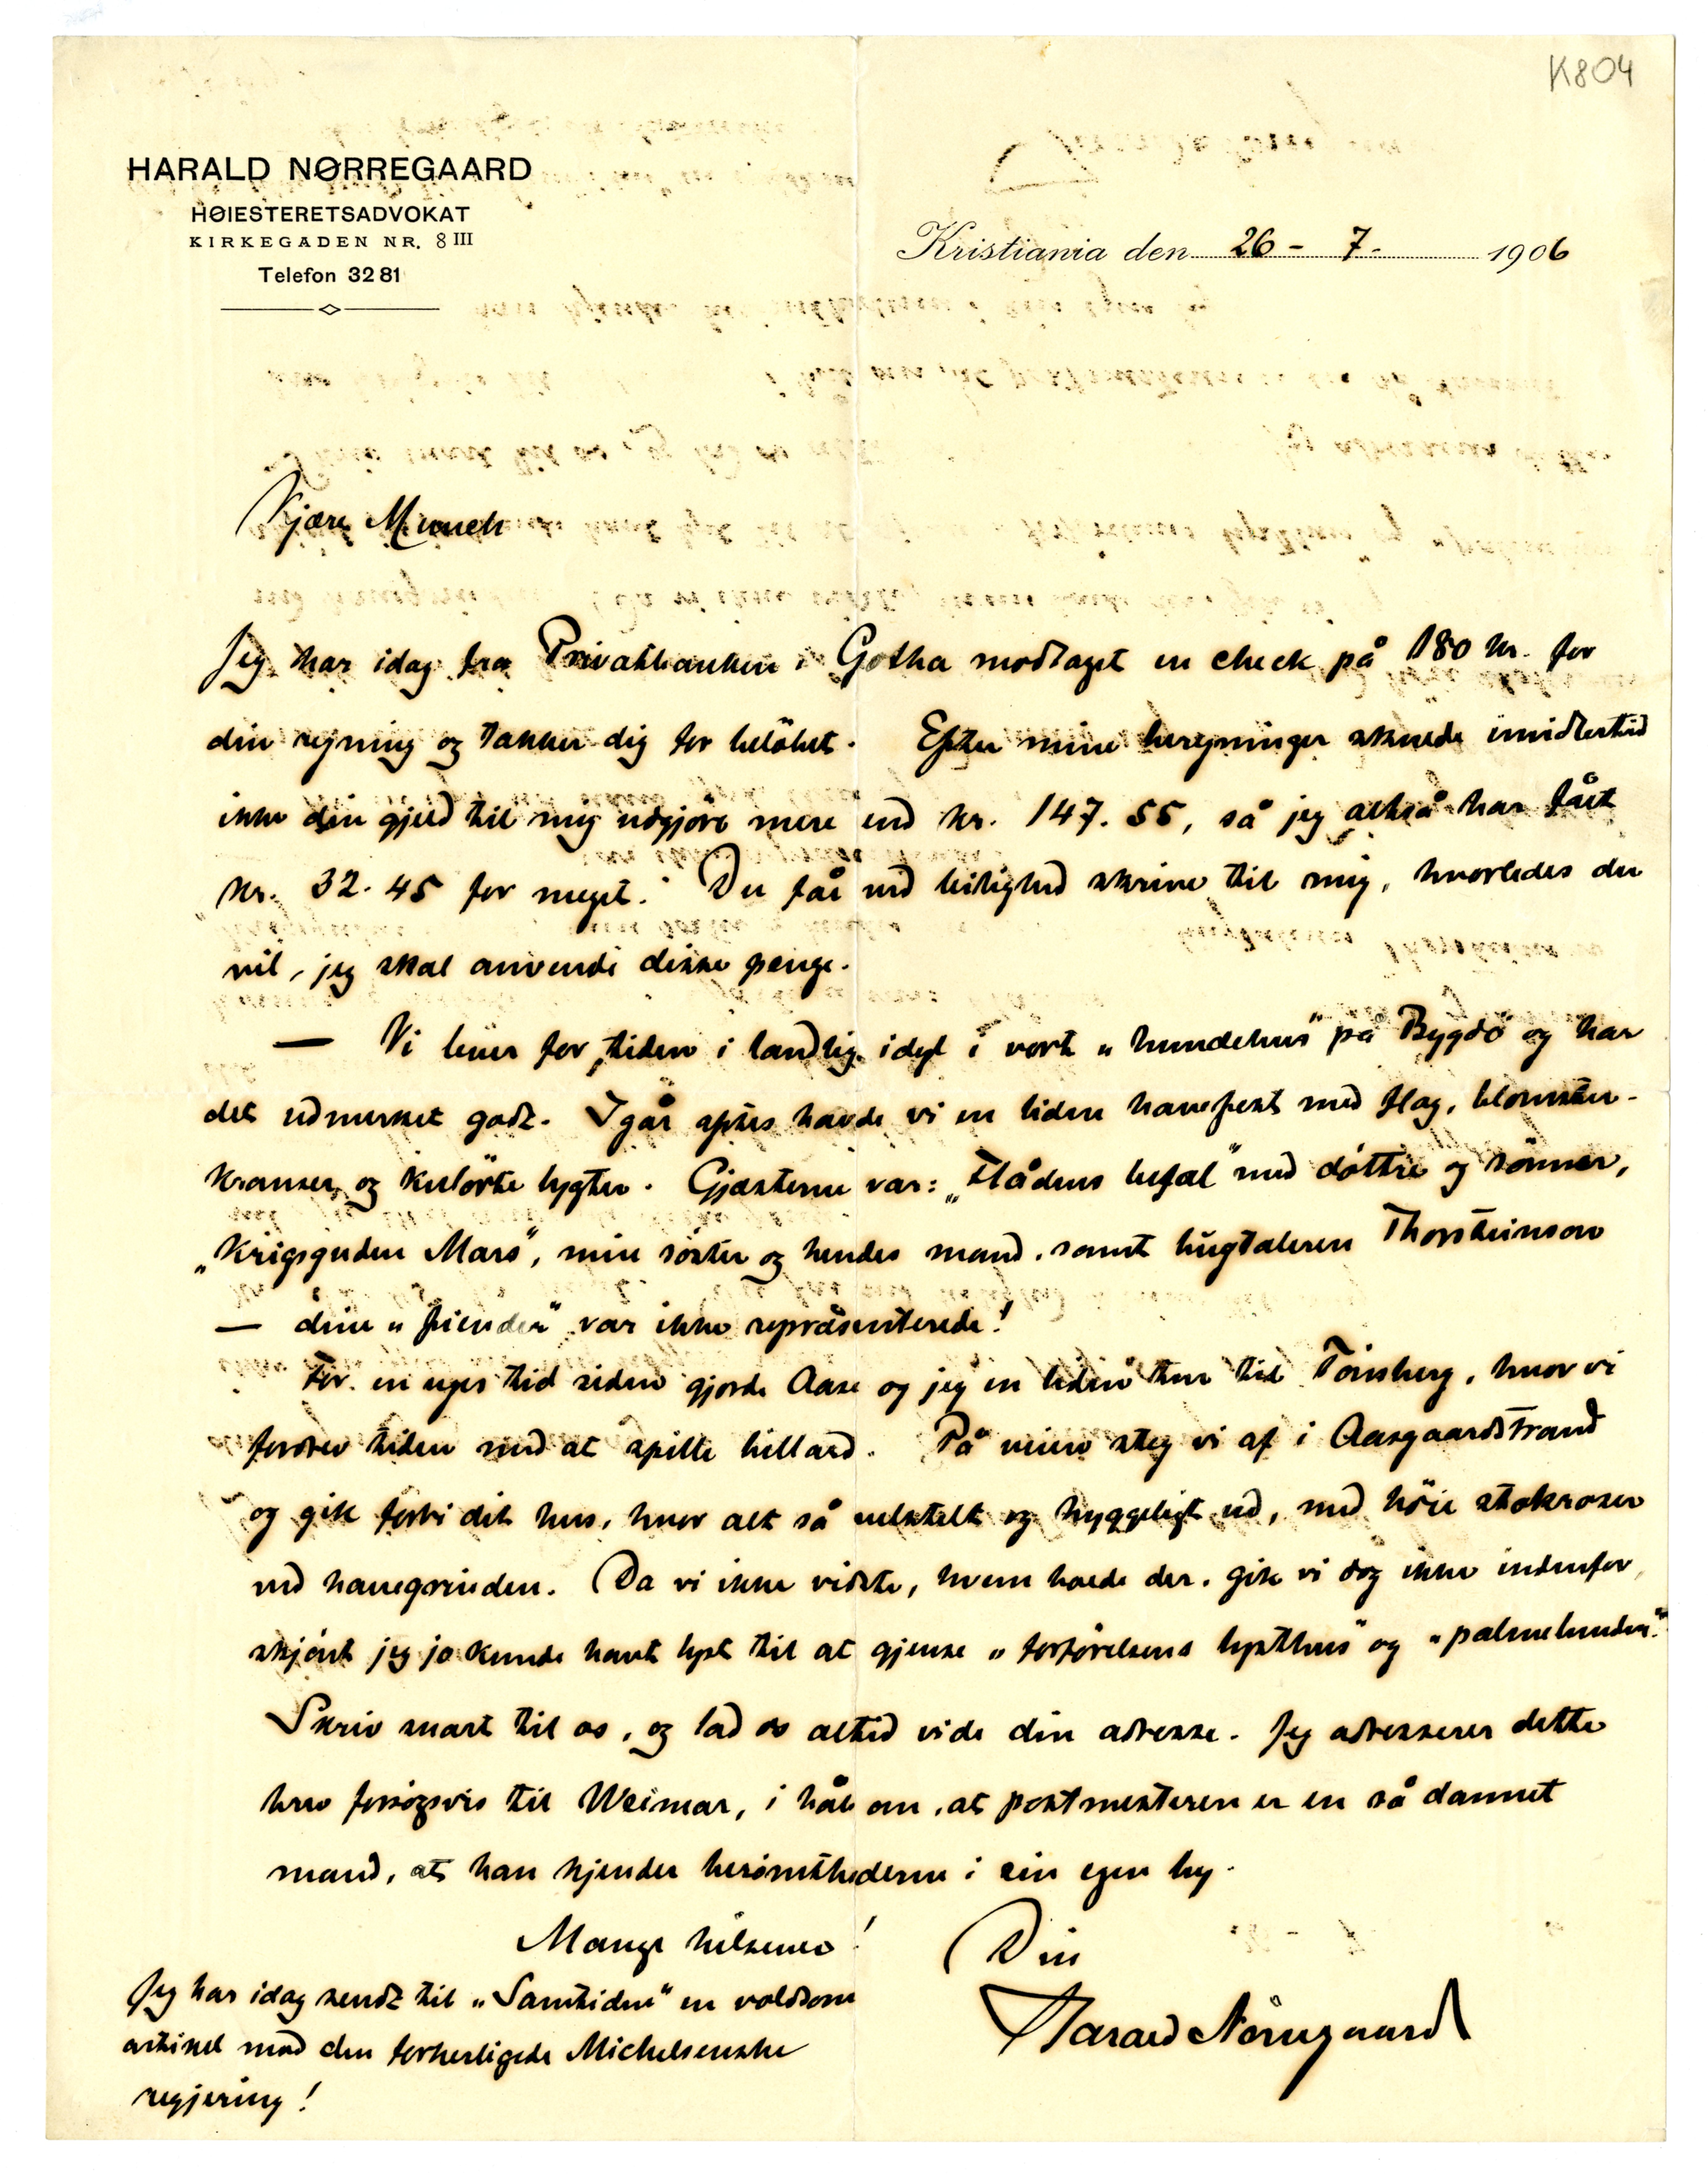 K804
HARALD NØRREGAARD
HØIESTERETSADVOKAT
KIRKEGADEN NR. 8 III
Telefon 3281
Kristiania den 26 - 7 - 1906
Kjære Munch
Jeg har idag fra Privatbanken i Gotha modtaget en check på 180 kr. for
din regning og takker dig for beløbet. Efter mine beregninger skulde imidlertid
ikke din gjeld til mig udgjøre mere end kr. 147.55, så jeg altså har fået
kr. 32.45 for meget. Du får ved leilighed skrive til mig, hvorledes du
vil, jeg skal anvende disse penge.
— Vi lever for tiden i landlig idyl i vort „hundehus" på Bygdö og har
det udmerket godt. Igår aftes havde vi en liden havefest med flag, blomster-
kranser og kulörte lygter. Gjæsterne var: „Flådens befal" med döttre og sönner,
„Krigsguden Mars", min söster og hendes mand, samt bugtaleren Thorsteinson
— dine „fiender" var ikke repräsenterede!
For en uges tid siden gjorde Aase og jeg en liden tur til Tönsberg, hvor vi
fordrev tiden med at spille billard. På veien steg vi af i Aasgaardstrand
og gik forbi dit hus, hvor alt så velstelt og hyggeligt ud, med höie stokroser
ved havegrinden. Da vi ikke vidste, hvem boede der, gik vi dog ikke indenfor,
skjönt jeg jo kunde havt lyst til at gjense „forförelsens lysthus" og „palmelunden".
Skriv snart til os, og lad os altid vide din adresse. Jeg adresserer dette
brev forsögsvis til Weimar, i håb om, at postmesteren er en så dannet
mand, at han kjender berömthederne i sin egen by.
Mange hilsener!
Din
Harald Nörregaard
Jeg har idag sendt til „Samtiden" en voldsom
artikel mod den forherligede Michelsenske
regjering!